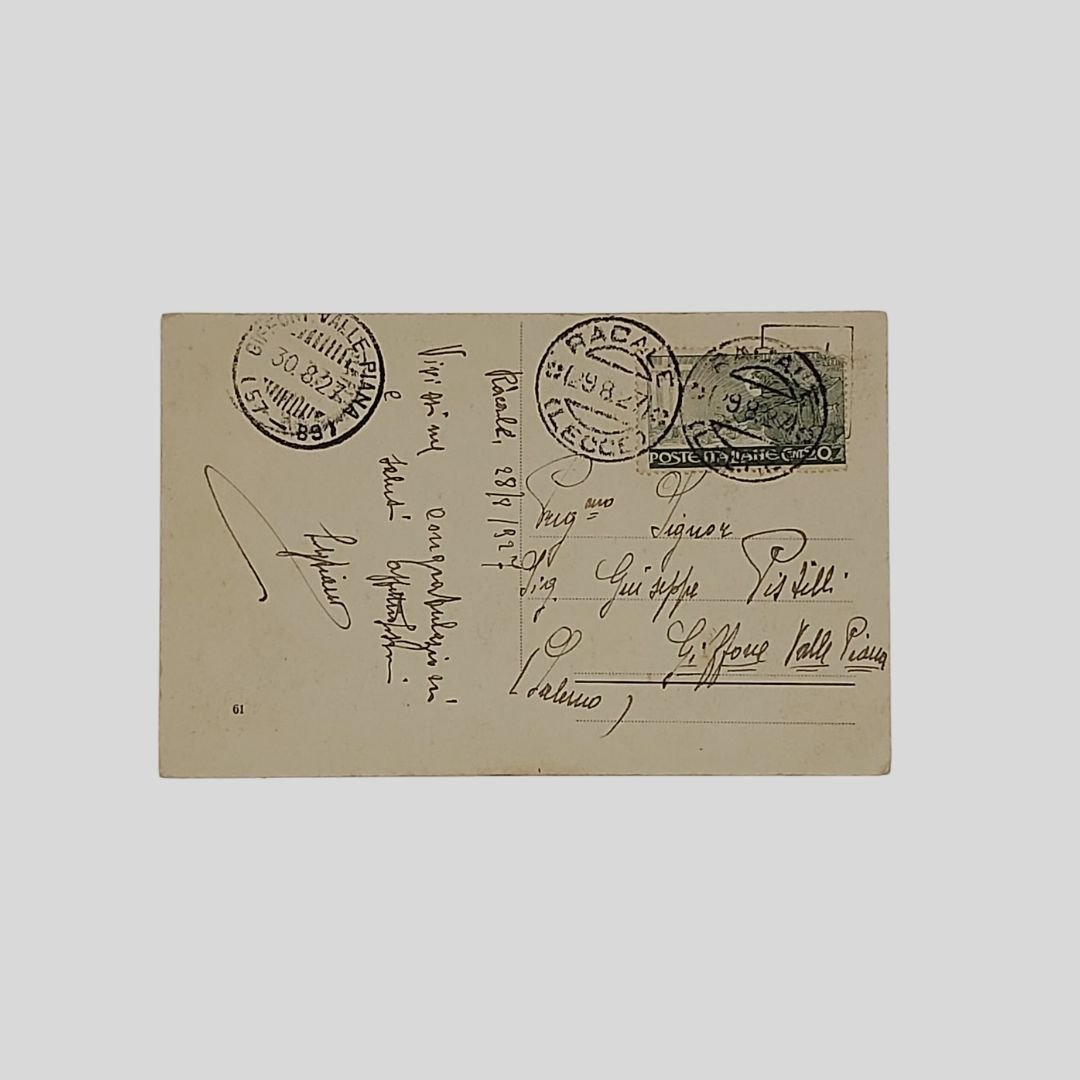 GIFFONI VALLE-PIANA
30.8.27
(57-89)
RACALE
29.8.27
(LECCE)
POSTE ITALIANE CENT. 20
Racale, 28/8/927
Vivissime congratulazioni
e
saluti
Preg.mo Signor
Sig. Giuseppe Pistilli
Giffone Valle Piana
(Salerno)
61